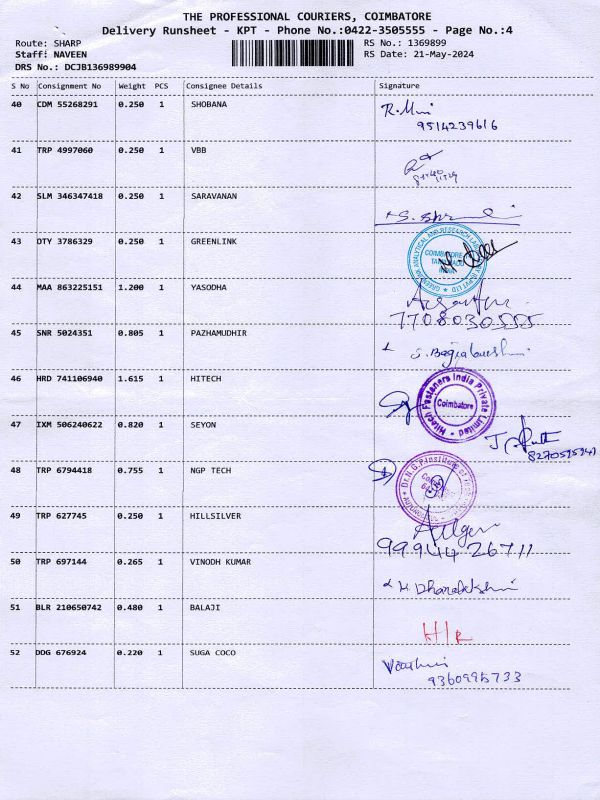 THE PROFESSIONAL COURIERS, COIMBATORE
Delivery Runsheet - KPT - Phone No.:0422-3505555 - Page No.:4
Route: SHARP RS No.: 1369899
Staff: NAVEEN RS Date: 21-May-2024
DRS No.: DCJB136989904
S No Consignment No Weight PCS Consignee Details Signature
40 CDM 55268291 0.250 1 SHOBANA
9514239616
41 TRP 4997060 0.250 1 VBB
42 SLM 346347418 0.250 1 SARAVANAN
43 DTY 3786329 0.250 1 GREENLINK
COIMBATORE
44 MAA 863225151 1.200 1 YASODHA
7708030555
45 SNR 5024351 0.805 1 PAZHAMUDHIR
46 HRD 741106940 1.615 1 HITECH
Hitech Fasteners India Private Limited
Coimbatore
47 IXM 506240622 0.820 1 SEYON
48 TRP 6794418 0.755 1 NGP TECH
49 TRP 627745 0.250 1 HILLSILVER
9994426711
50 TRP 697144 0.265 1 VINODH KUMAR
51 BLR 210650742 0.480 1 BALAJI
52 DDG 676924 0.220 1 SUGA COCO
9360995733